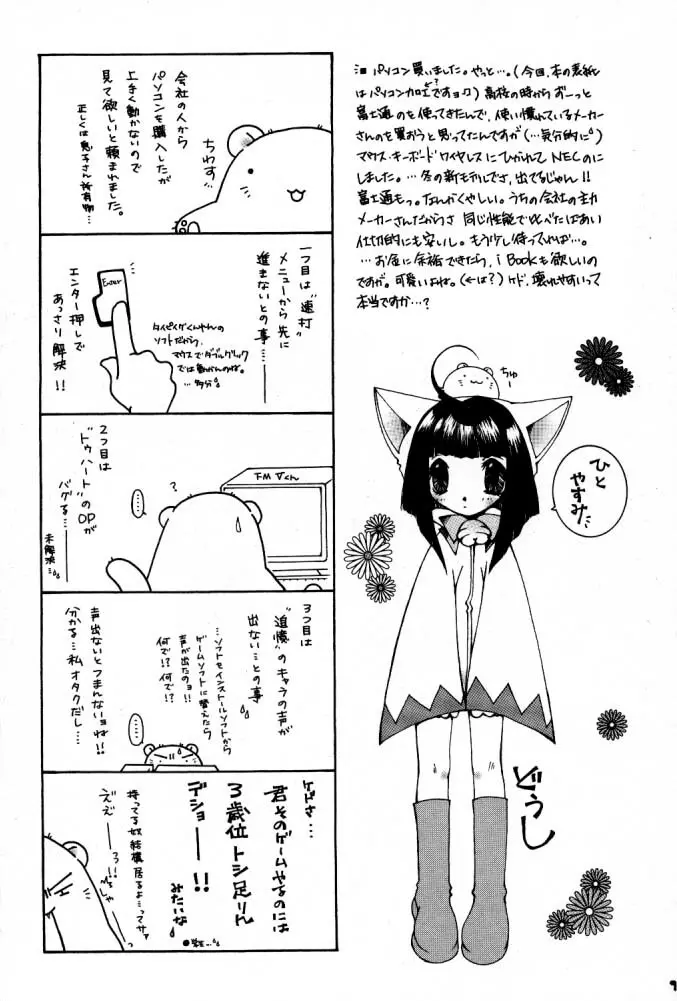 パソコン買いました。やっと…。(今回、本の表紙
はパソコン加工ですョ♪)高校の時からずーっと
富士通のを使ってきたんで、使い慣れているメーカー
さんのを買おうと思ってたんですが(…気分的に)
マウス・キーボードワイヤレスにひかれてNECのに
しました。…冬の新モデルでさ、出てるじゃん!!
富士通もっ。なんかくやしい。うちの会社の主力
メーカーさんだからさ 同じ性能で比べたばあい
仕切的にも安いし。もう少し待ってれば…。
…お金に余裕できたら、i Bookも欲しいの
ですが。可愛いよね。(←は?)ケド、壊れやすいって
本当ですか…?
会社の人から
パソコンを購入したが
上手く動かないので
見て欲しいと頼まれました。
正しくは息子さん所有物…
ちわす
一つ目は"連打"
メニューから先に
進まないとの事…
タイピングくんやんの
ソフトだから、
マウスでダブルクリック
では動かんのね。
…多分
Enter
エンター押しで
あっさり解決!!
2つ目は
"トゥハート"のOPが
バグる…
未解決…
……
?
FMVくん
3つ目は
"追憶"のキャラの声が
出ない…との事
…ソフトをインストールソフトから
ゲームソフトに替えたら
声が出たのョ!!
何で!?何で!?
声出ないとつまんないョね!!
分かる…私オタクだし…
……
ケドさ…
君そのゲームやるのには
3歳位トシ足りん
デショー!!
みたいな
持ってる奴結構居るよ…ってサァ
ええーろ!!
ちゅー
ひと
やすみ
どうし
9